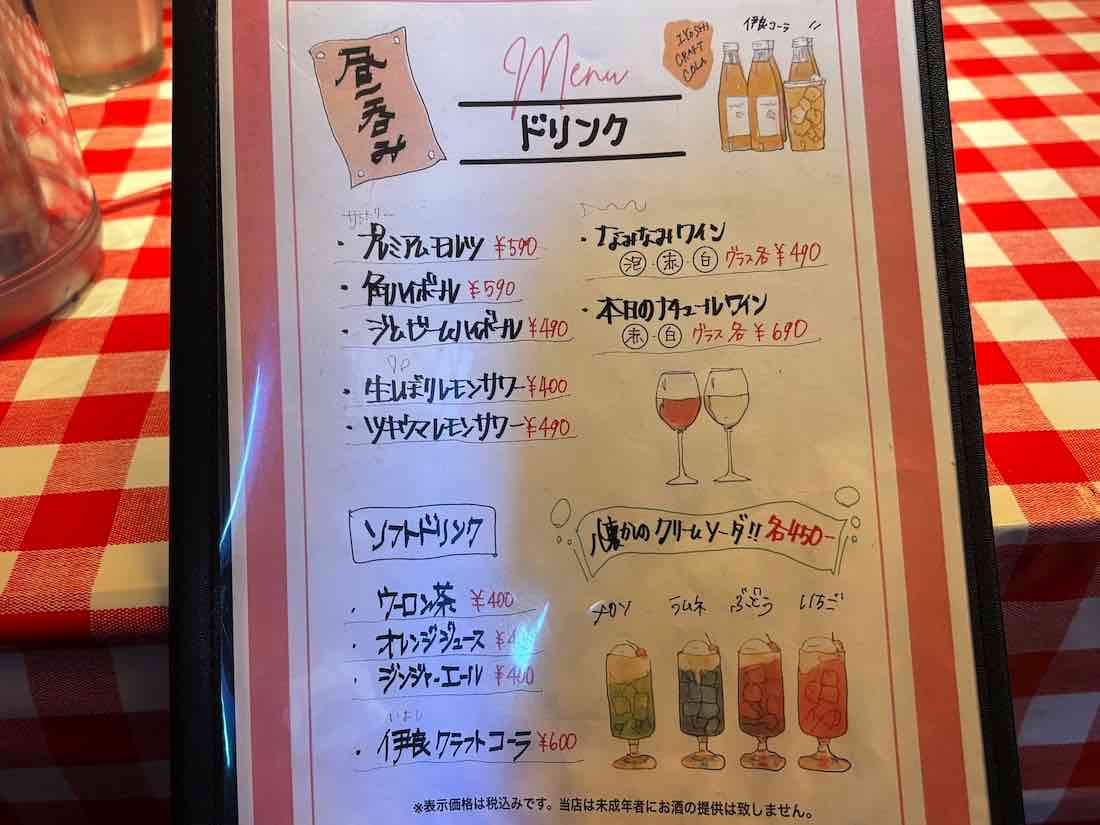 昼呑み
Menu
ドリンク
IYOSHI
CRAFT
COLA
伊良コーラ
サントリー
・プレミアムモルツ ¥590
・角ハイボール ¥590
・ジムビームハイボール ¥490
・生しぼりレモンサワー ¥400
・ツキウマレモンサワー ¥490
・なみなみワイン
泡・赤・白 グラス各¥490
・本日のナチュールワイン
赤・白 グラス各¥690
ソフトドリンク
・ウーロン茶 ¥400
・オレンジジュース ¥400
・ジンジャーエール ¥400
いよし
・伊良クラフトコーラ ¥600
懐かのクリームソーダ!! 各450-
メロン ラムネ ぶどう いちご
※表示価格は税込みです。当店は未成年者にお酒の提供は致しません。